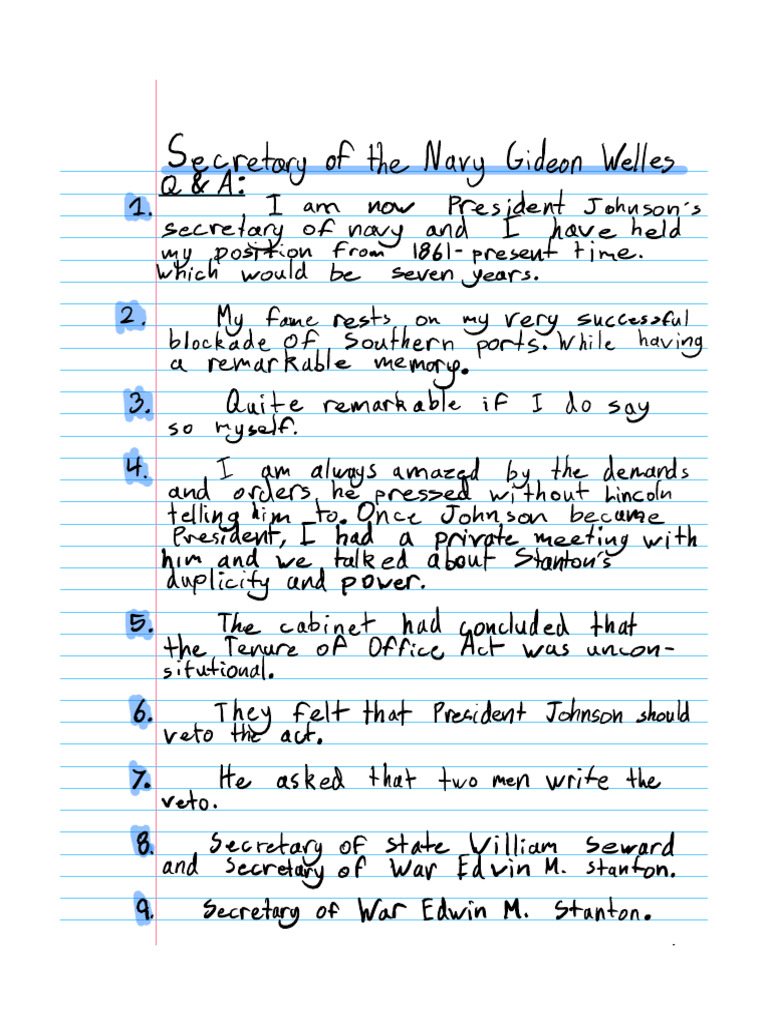 Secretary of the Navy Gideon Welles
Q & A:
1. I am now President Johnson's
secretary of navy and I have held
my position from 1861-present time.
which would be seven years.
2. My fame rests on my very successful
blockade of Southern ports. While having
a remarkable memory.
3. Quite remarkable if I do say
so myself.
4. I am always amazed by the demands
and orders he pressed without Lincoln
telling him to. Once Johnson became
President, I had a private meeting with
him and we talked about Stanton's
duplicity and power.
5. The cabinet had concluded that
the Tenure of Office Act was uncon-
situtional.
6. They felt that President Johnson should
veto the act.
7. He asked that two men write the
veto.
8. Secretary of state William Seward
and Secretary of War Edvin M. Stanton.
9. Secretary of War Edwin M. Stanton.